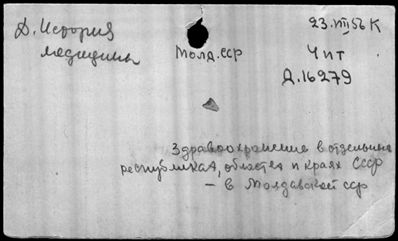 Д. История
медицины
Молд. ССР
23.VIII 56 К
Чит
Д.16279
Здравоохранение в отдельных
республиках, областях и краях СССР
– в Молдавской ССР